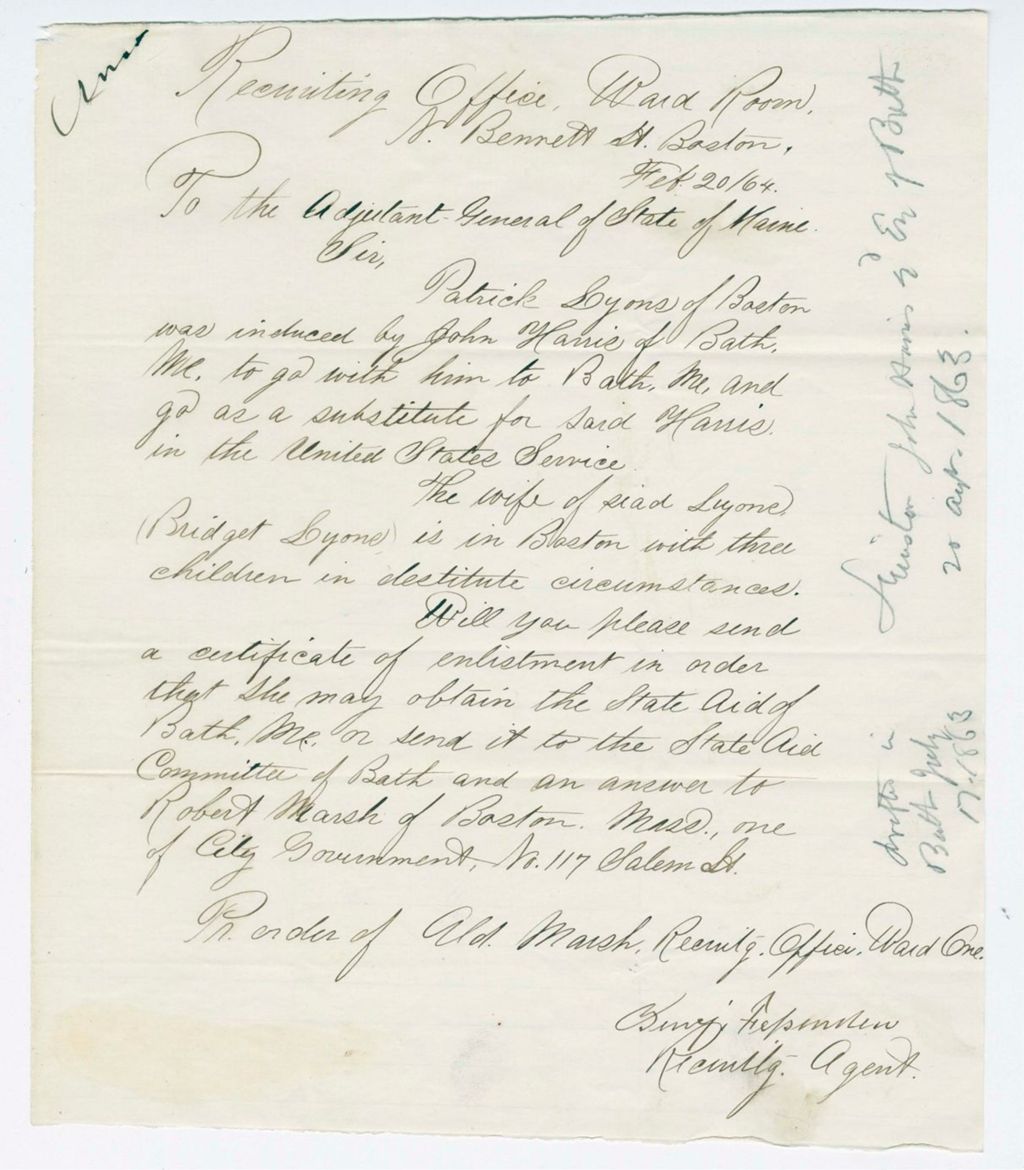 Ansd
Recruiting Office, Ward Room,
N. Bennett St. Boston.
Feb. 20/64.
To the Adjutant-General of State of Maine.
Sir,
Patrick Lyons of Boston
was induced by John Harris of Bath,
Me. to go with him to Bath, Me, and
go as a substitute for said Harris
in the United States Service.
The wife of siad Lyons,
(Bridget Lyons) is in Boston with three
children in destitute circumstances.
Will you please send
a certificate of enlistment in order
that she may obtain the State Aid of
Bath, Me. or send it to the State Aid
Committee of Bath and an answer to
Robert Marsh of Boston. Mass., one
of City Government, No. 117 Salem St.
Pr. order of Ald. Marsh, Recruitg. Office, Ward One.
Benj. Fessenden
Recruitg. Agent.
John Harris
20 1863.
drafted in
Bath July
17. 1863